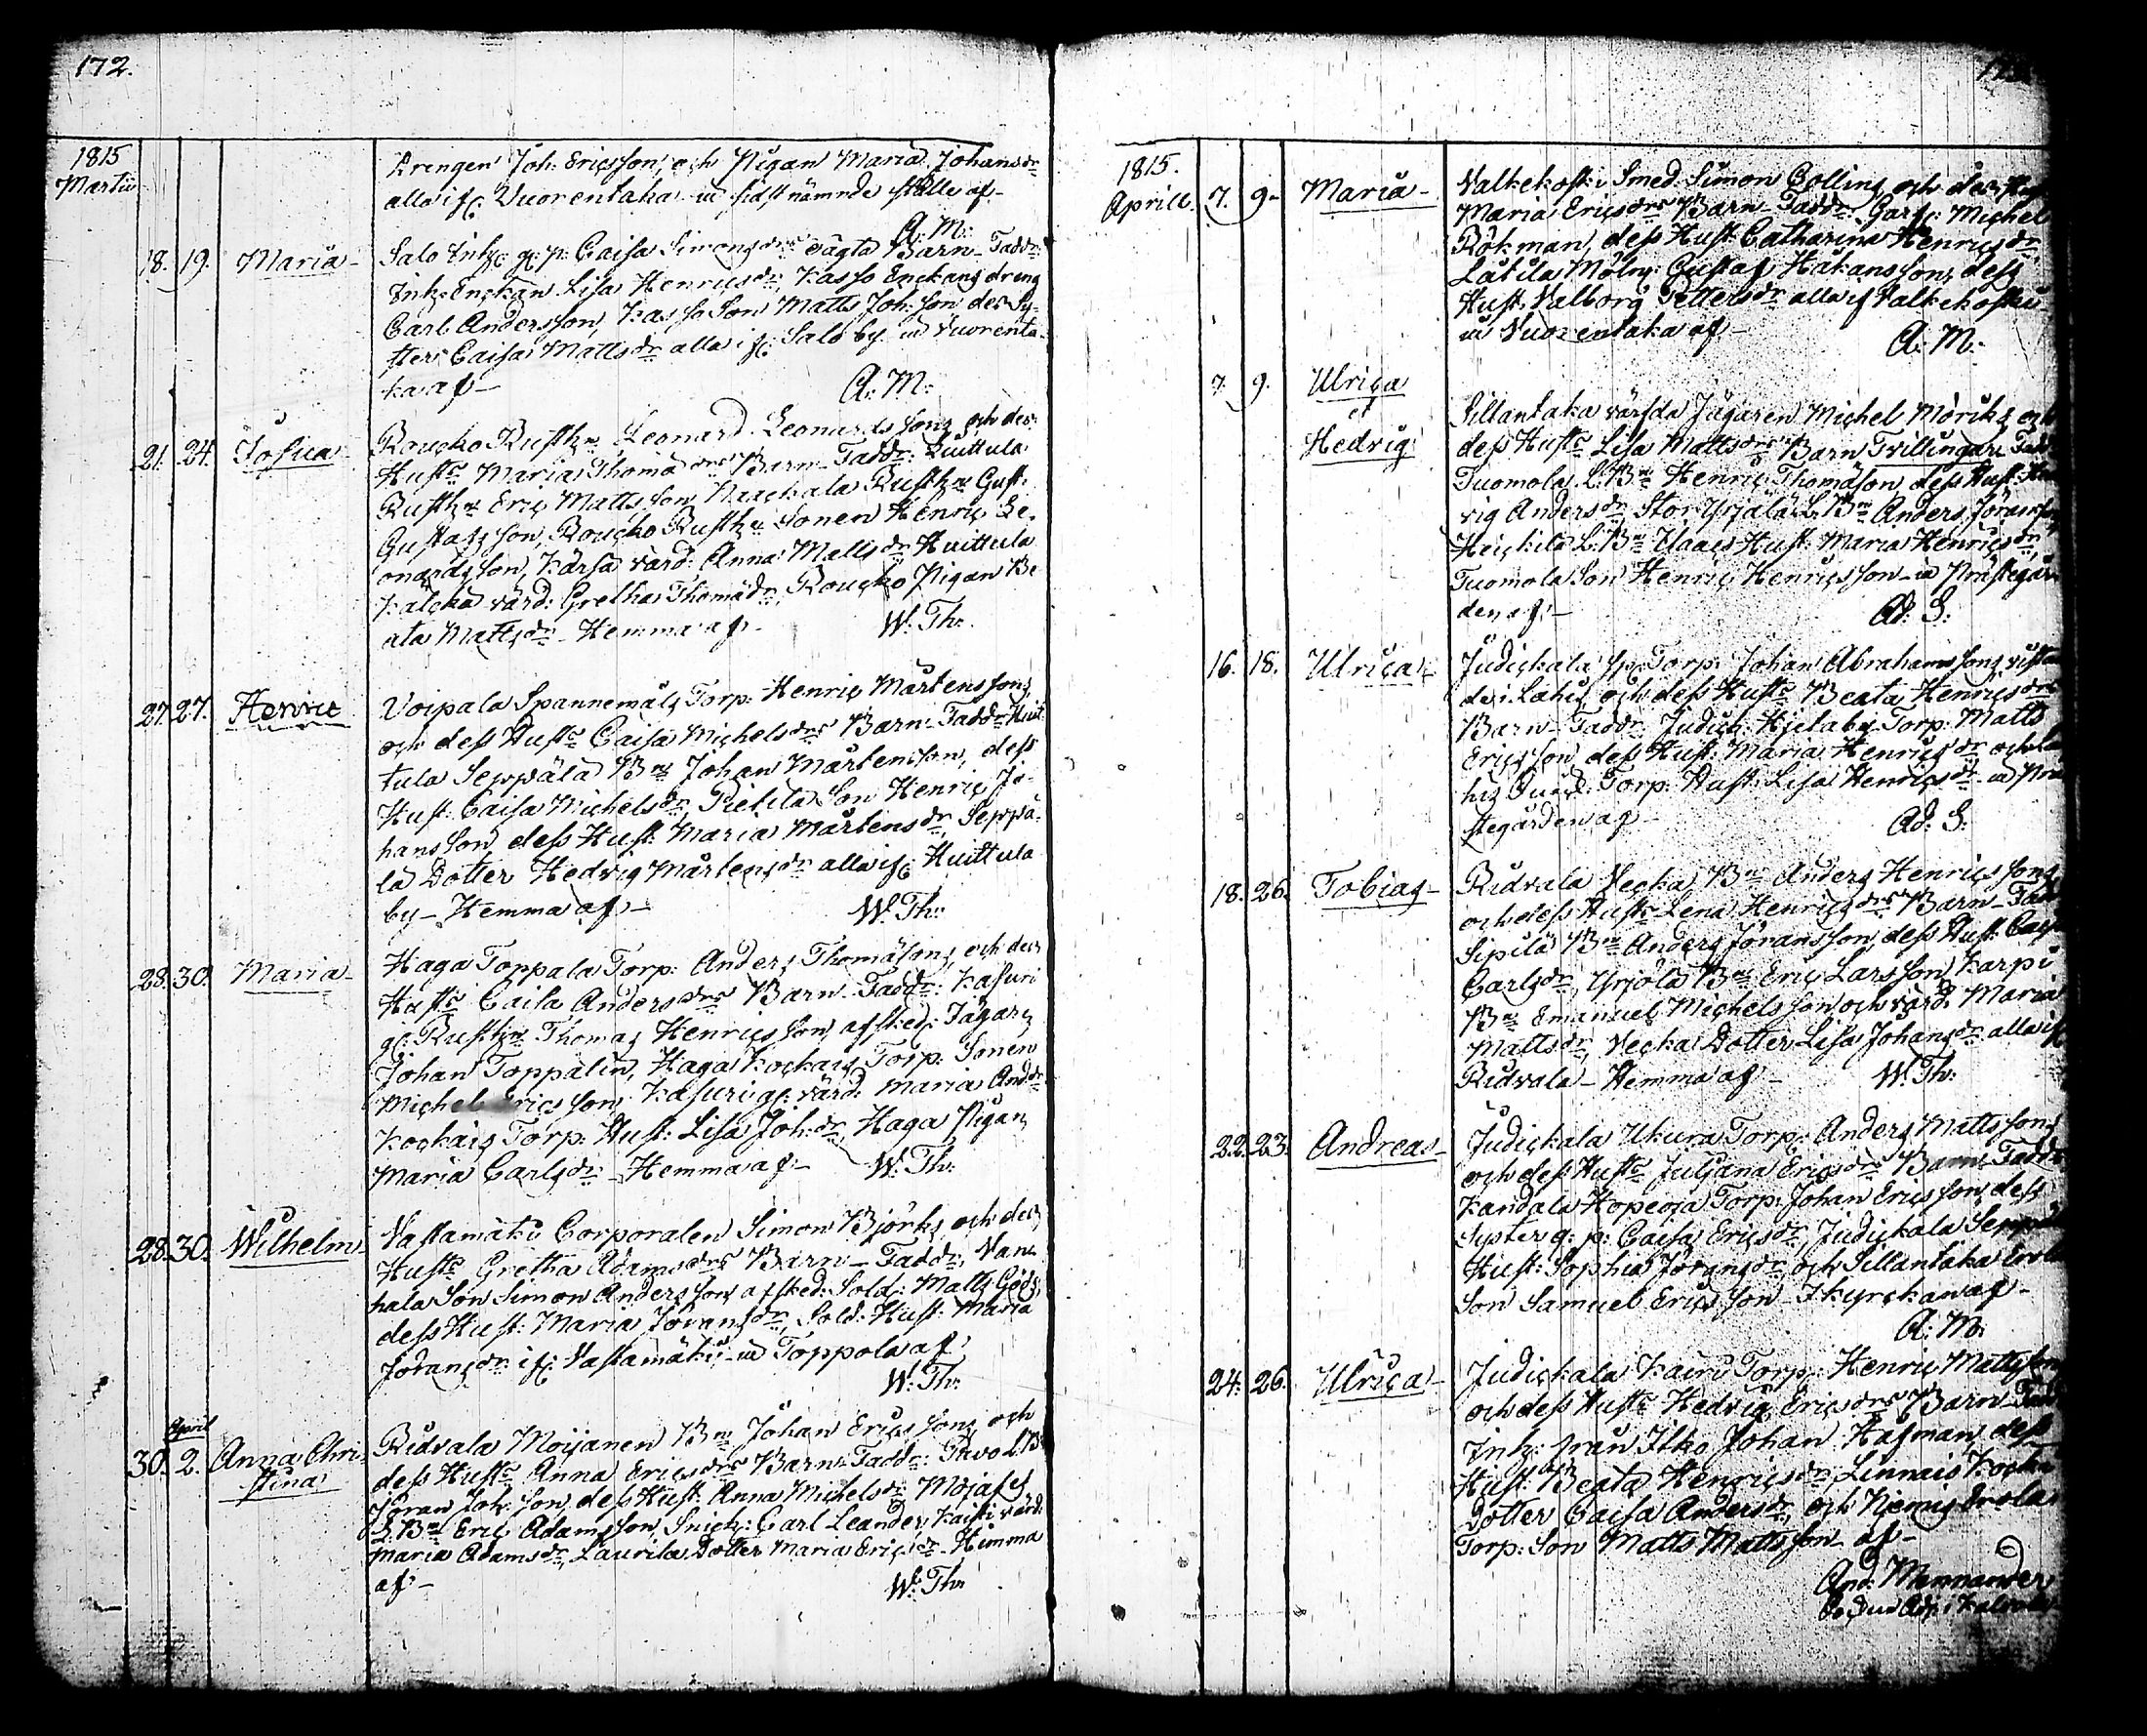 172.
1815
Martii
Drengen Joh: Ericsson, och Pigan Maria Johansdr
alla if: Vuorentaka in sidstnämnde ställe af-
A: M:
18. 19. Maria- Salo Inh: g: p: Caisa Simonsdrs oägta Barn- Faddr:
Inh: Enckan Lisa Henricsdr, Kasso Enckans dreng
Carl Andersson, Kasso Son Matts Joh:son des Sy-
ster Caisa Mattsdr alla if: Salo by in Vuorenta-
ka af-
A: M:
21. 24. Josua- Roucko Rusth: Leonard Leonardssons och des
Hustr Maria Thomædrs Barn- Faddr: Huittula
Rusth: Eric Mattsson, Rusth: Gust:
Gustafsson, Roucko Rusth: Sonen Henric Le-
onardsson, Kärsä värd: Anna Mattsdr Huittula
värd: Gretha Thomædr, Roucko Pigan Be
ata Mattsdr- Hemma af-
W: Th:
27. 27. Henric Voipala Spannemåls Torp: Henric Mårtenssons
och dess Hustr Caisa Michelsdrs Barn- Faddr Huit
tula Seppälä Bn Johan Mårtensson, dess
Hust: Caisa Michelsdr, Pietila Son Henric Jo-
hansson, dess Hust: Maria Mårtensdr, Seppä-
lä Dotter Hedvig Mårtensdr alla if: Huittula
by- Hemma af-
W: Th:
28. 30. Maria- Haga Toppala Torp: Anders Thomæsons, och des
Hustr Caisa Andersdrs Barn- Faddr: Kasuri
gl: Rusth: Thomas Henricsson, afsked: Jägarn
Johan Toppalin, Haga Torp: Sonen
Michel Ericsson, Kasuri gl: värd: Maria Andr
Torp: Hust: Lisa Joh:dr, Haga Pigan
Maria Carlsdr- Hemma af-
W: Th:
28. 30. Wilhelm- Vastamäki Corporalen Simon Björks, och des
Hustr Gretha Adamsdrs Barn- Faddr: Van-
hala Son Simon Andersson, afsked: Sold: Matts
dess Hust: Maria Joransdr, Sold: Hust: Maria
Joransdr if: Vastamäki- in Toppola af
W: Th:
April
30. 2. Anna Chri
stina Ridvala Moijanen Bn Johan Ericssons och
dess Hustr Anna Ericsdrs Barn- Faddr: L: B
Jöran Joh:son, dess Hust: Anna Michelsdr
L: Bn Eric Adamsson, Snick: Carl Leander, värd:
Maria Adamsdr, Laurila Dotter Maria Ericsdr- Hemma
af-
W: Th:
1815.
Aprill. 7. 9- Maria- Valkekoski Smed: Simon Collins och des Hust
Maria Ericsdrs Barn- Faddr: Garf: Michel
Rökman, dess Hust: Catharina Henricsdr,
Lätila Mölnr: Gustaf Håkansson, dess
Hust: Valborg Pettersdr alla if Valkekoski-
in Vuorentaka af-
A: M:
7. 9. Ulrica
et
Hedvig Sillantaka värfda Jägaren Michel Möriks och
dess Hustr Lisa Mattsdrs Barn Tvillingar Fadd
Tuomola L: Bn Henric Thomæson dess Hust: Hed
vig Andersdr, Stor Yrjälä L: Bn Anders Jöransson,
Heickilä L: Bn Claes Hust: Maria Henricsdr,
Tuomola Son Henric Henricsson- in Prästegår
den af-
Ad: S:
16. 18. Ulrica- Judickala Torp: Johan Abrahamssons vistan
de i Lahis, och dess Hustr Beata Henricsdrs
Barn- Faddr: Judick: Hjelaby Torp: Matts
Ericsson, dess Hust: Maria Henricsdr och La
his Torp: Hust: Lisa Henricsdr in Prä
stegården af-
Ad: S:
18. 26. Tobias- Ridvala Vecka Bn Anders Henricssons
och dess Hustr Lena Henricsdrs Barn- Fadd
Sipilä Bn Anders Jöransson, dess Hust: Caisa
Carlsdr, Yrjölä Bn Eric Larsson, Karpi
Bn Emanuel Michelsson och värd: Maria
Mattsdr, Vecka Dotter Lisa Johansdr alla if
Ridvala- Hemma af-
W: Th:
22. 23. Andreas- Judickala Ukura Torp: Anders Mattssons
och dess Hustr Juliana Ericsdrs Barn- Faddr
Kandala Hopeoja Torp: Johan Ericsson, dess
Syster q: p: Caisa Ericsdr, Judickala Seppälä
Hust: Sophia Jöransdr, och Sillantaka
Son Samuel Ericsson- I kyrckan af-
A: M:
24. 26. Ulrica- Judickala Kairi Torp: Henric Mattsson
och dess Hustr Hedvig Ericsdrs Barn- Fadd
Inh: från Itko Johan Hafman, dess
Hust: Beata Henricsdr, Linnais
Dotter Caisa Andersdr, och Niemis
Torp: Son Matts Mattsson- af-
And: Mennander,